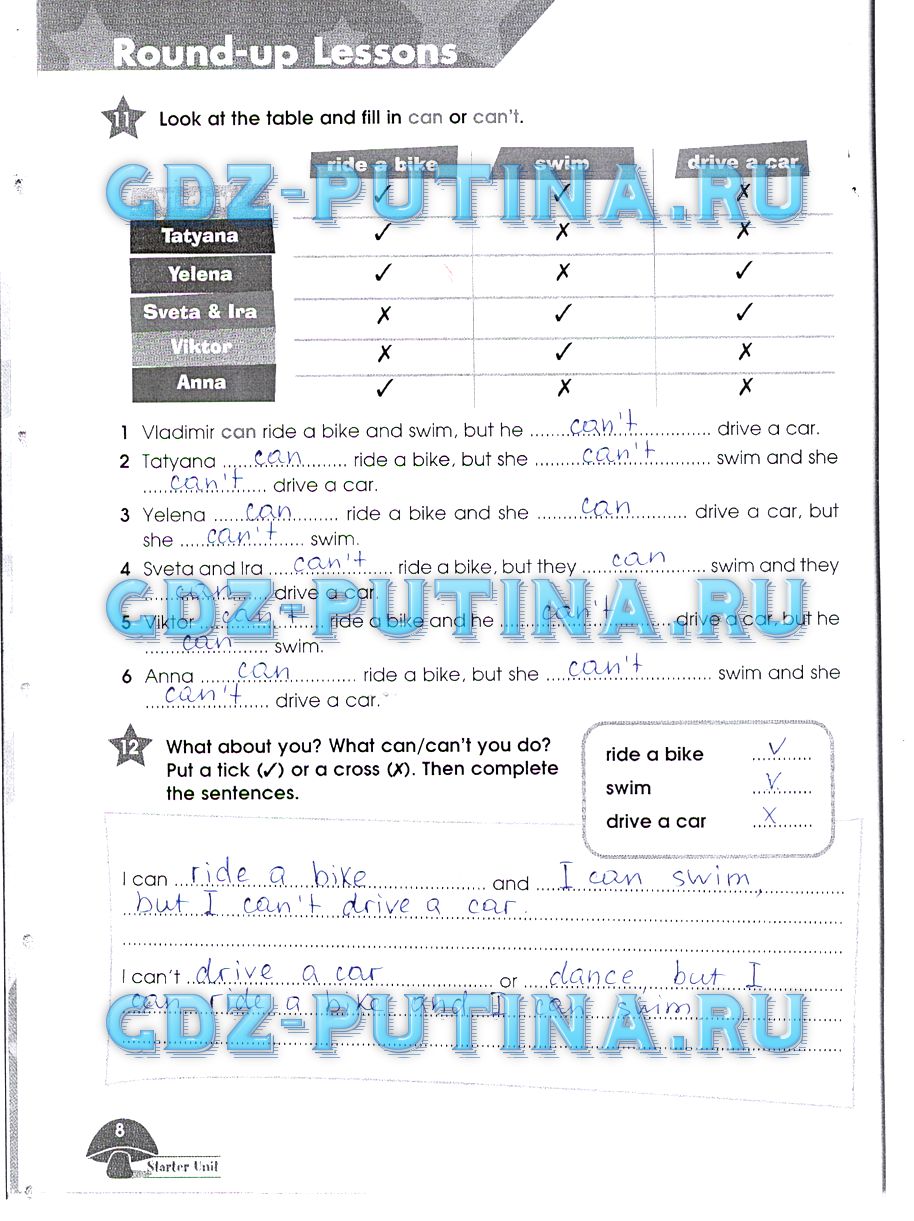 Round-up Lessons
11 Look at the table and fill in can or can't.
ride a bike swim drive a car
GDZ-PUTINA.RU
✓ ✓ ✗
Tatyana ✓ ✗ ✗
Yelena ✓ ✗ ✓
Sveta & Ira ✗ ✓ ✓
Viktor ✗ ✓ ✗
Anna ✓ ✗ ✗
1 Vladimir can ride a bike and swim, but he can't drive a car.
2 Tatyana can ride a bike, but she can't swim and she
can't drive a car.
3 Yelena can ride a bike and she can drive a car, but
she can't swim.
4 Sveta and Ira can't ride a bike, but they can swim and they
can drive a car.
GDZ-PUTINA.RU
5 Viktor can't ride a bike and he can't drive a car, but he
can swim.
6 Anna can ride a bike, but she can't swim and she
can't drive a car.
12 What about you? What can/can't you do?
Put a tick (✓) or a cross (✗). Then complete
the sentences.
ride a bike ✓
swim ✓
drive a car ✗
I can ride a bike and I can swim,
but I can't drive a car.
I can't drive a car or dance, but I
can ride a bike and I can swim
GDZ-PUTINA.RU
8
Starter Unit